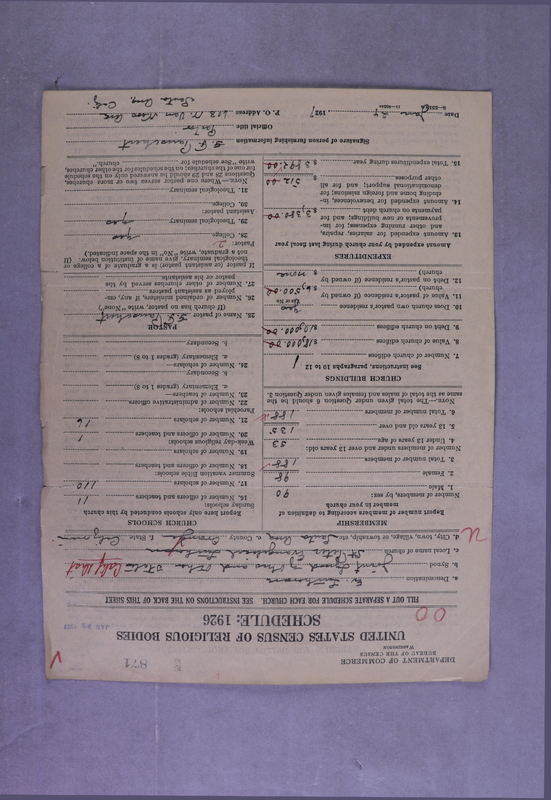 871
DEPARTMENT OF COMMERCE
BUREAU OF THE CENSUS
WASHINGTON
UNITED STATES CENSUS OF RELIGIOUS BODIES
SCHEDULE: 1926
FILL OUT A SEPARATE SCHEDULE FOR EACH CHURCH. SEE INSTRUCTIONS ON THE BACK OF THIS SHEET
a. Denomination Lutheran
b. Synod Joint Synod of Ohio and other States
c. Local name of church St. Peter Evangelical Lutheran
d. City, town, village, or township, etc. Santa Ana e. County Orange f. State California
MEMBERSHIP
Report number of members according to definition of member in your church
Number of members, by sex:
1. Male 90
2. Female 98
3. Total number of members 188
Number of members under and over 13 years old:
4. Under 13 years of age 53
5. 13 years old and over 135
6. Total number of members 188
NOTE.—The total given under Question 6 should be the same as the total of males and females given under Question 3.
CHURCH BUILDINGS
See instructions, paragraphs 10 to 12
7. Number of church edifices 1
8. Value of church edifices
9. Debt on church edifices
10. Does church own pastor's residence yes
11. Value of pastor's residence (if owned by church)
12. Debt on pastor's residence (if owned by church) $ none
EXPENDITURES
Amount expended by your church during last fiscal year
13. Amount expended for salaries, repairs, and other running expenses; for improvements or new buildings; and for payments on church debt
14. Amount expended for benevolence, including home and foreign missions; for denominational support; and for all other purposes $ 512.00
15. Total expenditures during year
CHURCH SCHOOLS
Report here only schools conducted by this church
Sunday schools:
16. Number of officers and teachers 11
17. Number of scholars 110
Summer vacation Bible schools:
18. Number of officers and teachers
19. Number of scholars
Week-day religious schools:
20. Number of officers and teachers 1
21. Number of scholars 16
Parochial schools:
22. Number of administrative officers
23. Number of teachers—
a. Elementary (grades 1 to 8)
b. Secondary
24. Number of scholars—
a. Elementary (grades 1 to 8)
b. Secondary
PASTOR
25. Name of pastor
(If church has no pastor, write "None")
26. Number of ordained ministers, if any, employed as assistant pastors
27. Number of other churches served by the pastor or his assistants
If pastor (or assistant pastor) is a graduate of a college or theological seminary, give name of institution below. (If not a graduate, write "No" in the space indicated.)
Pastor: 2
28. College yes
29. Theological seminary yes
Assistant pastor:
30. College
31. Theological seminary
NOTE.—Where one pastor serves two or more churches, Questions 28 and 29 should be answered only on the schedule for one of the churches; on the schedules for the other churches, write "See schedule for church."
Signature of person furnishing information
Official title Pastor
Date 1927 P. O. Address Santa Ana, Cal.